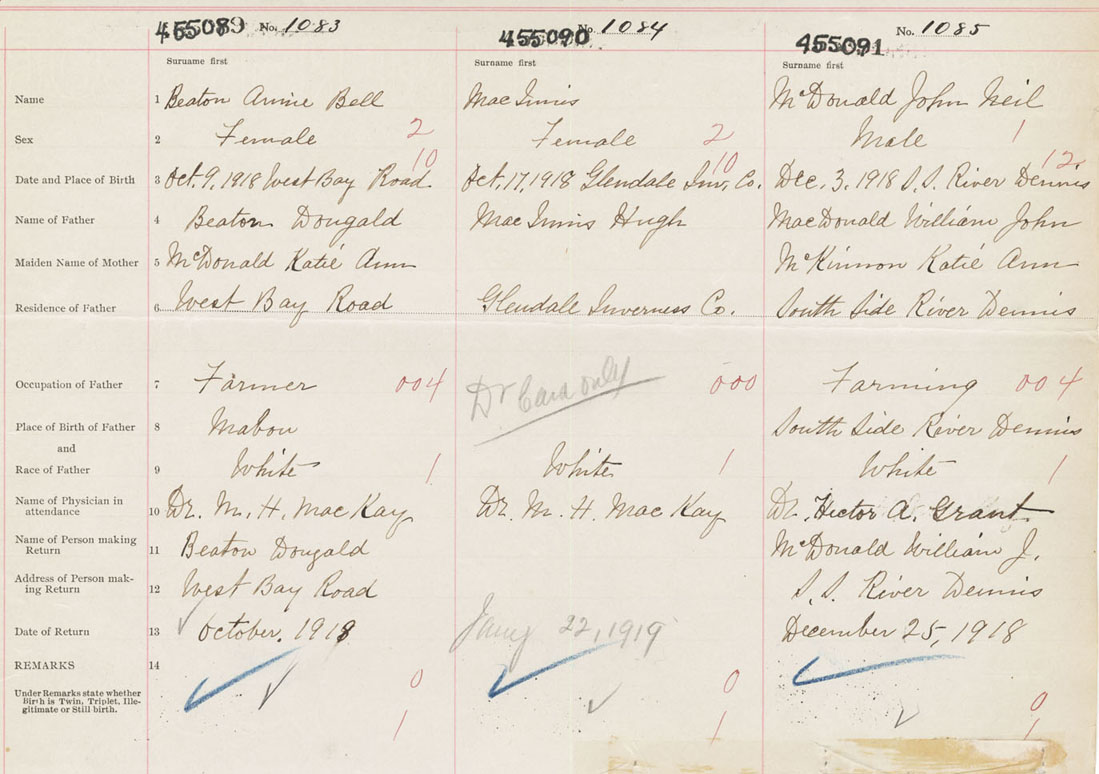 455089 No. 1083 455090 No. 1084 455091 No. 1085
Surname first Surname first Surname first
Name 1 Beaton Annie Bell Mac Innis McDonald John Neil
Sex 2 Female 2 Female 2 Male 1
10 10 12
Date and Place of Birth 3 Oct. 9, 1918 West Bay Road Oct. 17, 1918 Glendale Inv. Co. Dec. 3, 1918 S. S. River Dennis
Name of Father 4 Beaton Dougald Mac Innis Hugh MacDonald William John
Maiden Name of Mother 5 McDonald Katie Ann McKinnon Katie Ann
Residence of Father 6 West Bay Road Glendale Inverness Co. South Side River Dennis
Occupation of Father 7 Farmer 004 Dr Card only 000 Farming 004
Place of Birth of Father 8 Mabou South Side River Dennis
and
Race of Father 9 White 1 White 1 White 1
Name of Physician in
attendance 10 Dr. M. H. Mac Kay Dr. M. H. Mac Kay Dr. Hector A. Grant
Name of Person making
Return 11 Beaton Dougald McDonald William J.
Address of Person mak-
ing Return 12 West Bay Road S. S. River Dennis
Date of Return 13 October. 1918 Jany 22, 1919 December 25, 1918
REMARKS 14
Under Remarks state whether
Birth is Twin, Triplet, Ille-
gitimate or Still birth.
0 0 0
1 1 1